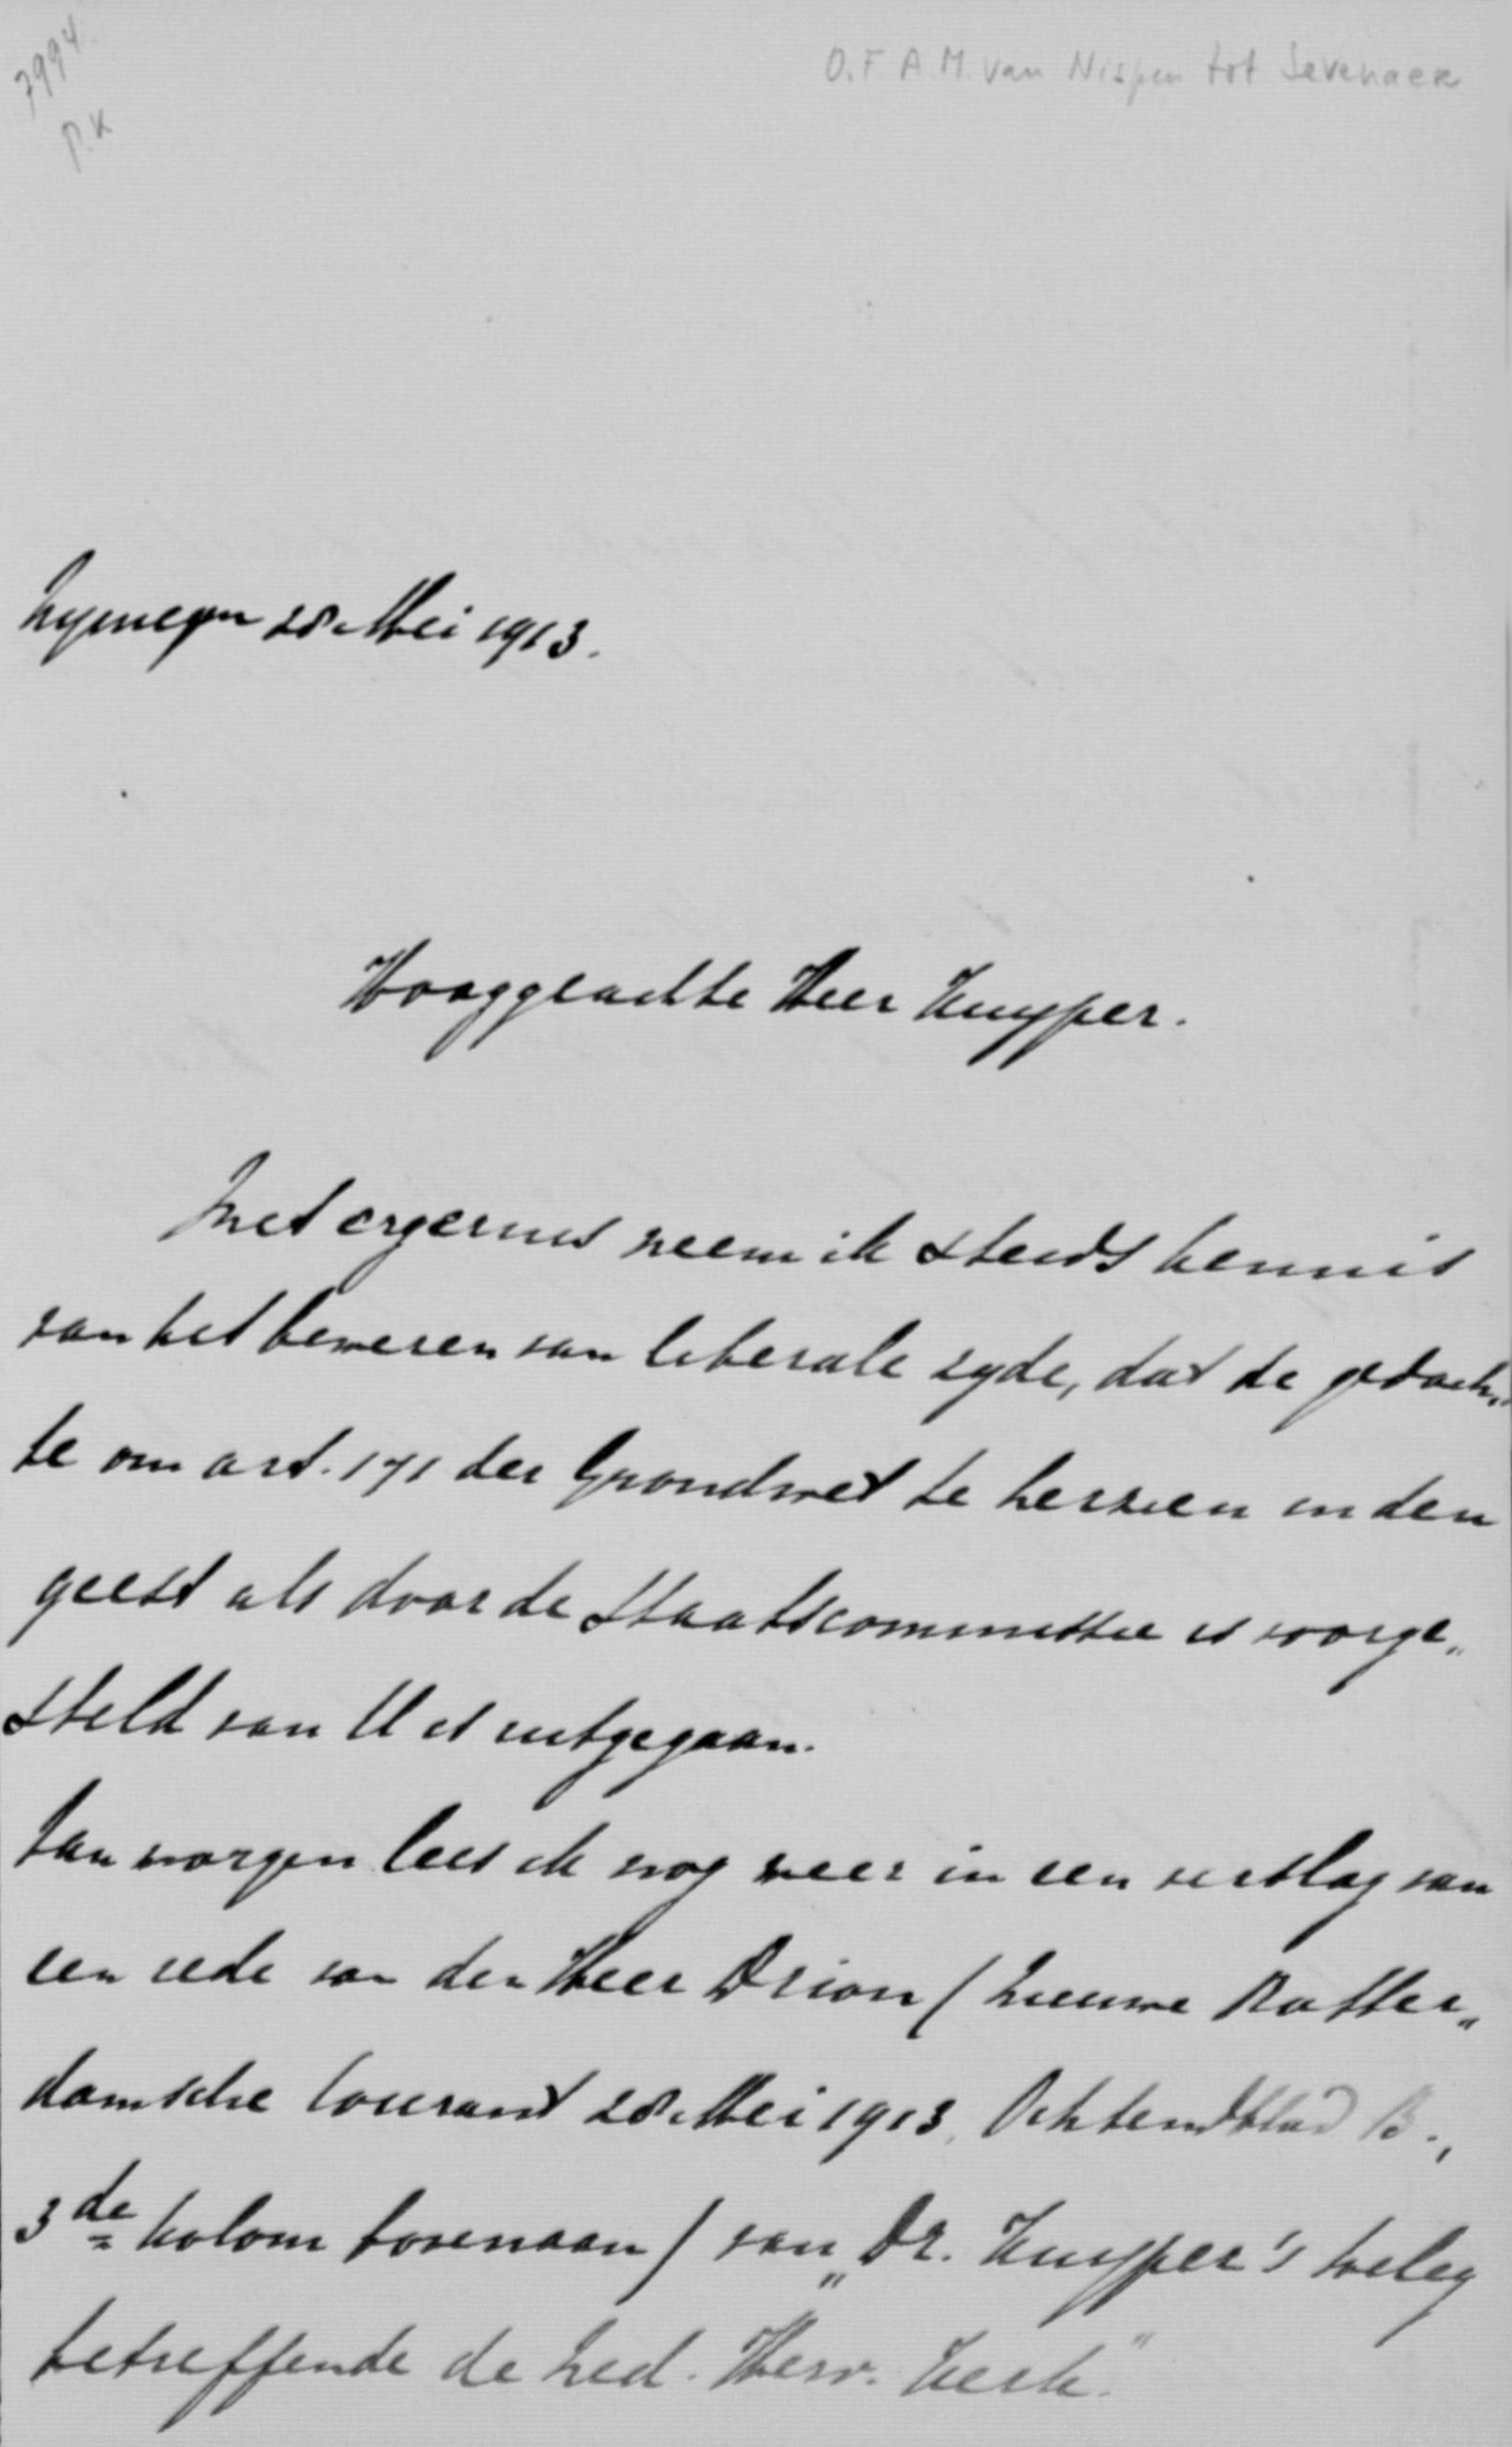 7994.
P.K
O.F.A.M. van Nispen tot Sevenaer
Nymegen 28 Mei 1913.
Hooggeachte Heer Kuyper.
Met ergernis neem ik steeds kennis
van het beweren van liberale zyde, dat de gedach„
te om art. 171 der Grondwet te herzien in den
geest als door de Staatscommissie is voorge„
steld van U is uitgegaan.
Van morgen lees ik nog weer in een verslag van
een rede van den Heer Drion (Nieuwe Rotter„
damsche Courant 28 Mei 1913, Ochtendblad B.,
3de kolom bovenaan) van „Dr. Kuyper's toeleg
betreffende de Ned. Herv. Kerk."